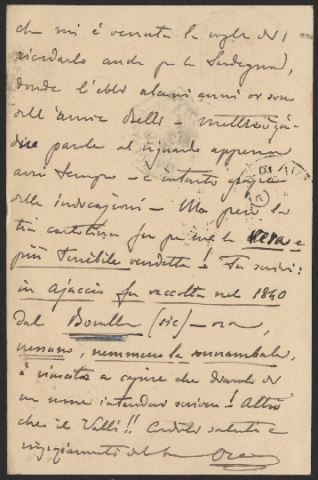 che mi è venuta la voglia di
ricordarlo anche per la Sardegna,
donde l'ebbi alcuni anni or sono
dell'amico Belli – Metterò giù
due parole al riguardo appena
avrò tempo – e intanto grazie
delle indicazioni – Ma però la
tua cartolina fu per me la vera e
più terribile vendetta! Tu scrivi:
in Ajaccio fu raccolta nel 1840
dal Boullu (sic) – ora,
nessuno, nemmeno la sonnambula,
è riuscito a capire che diavolo di
un nome intendevi scrivere! Altro
che il Valli!! Cordiali saluti e
ringraziamenti dal tuo